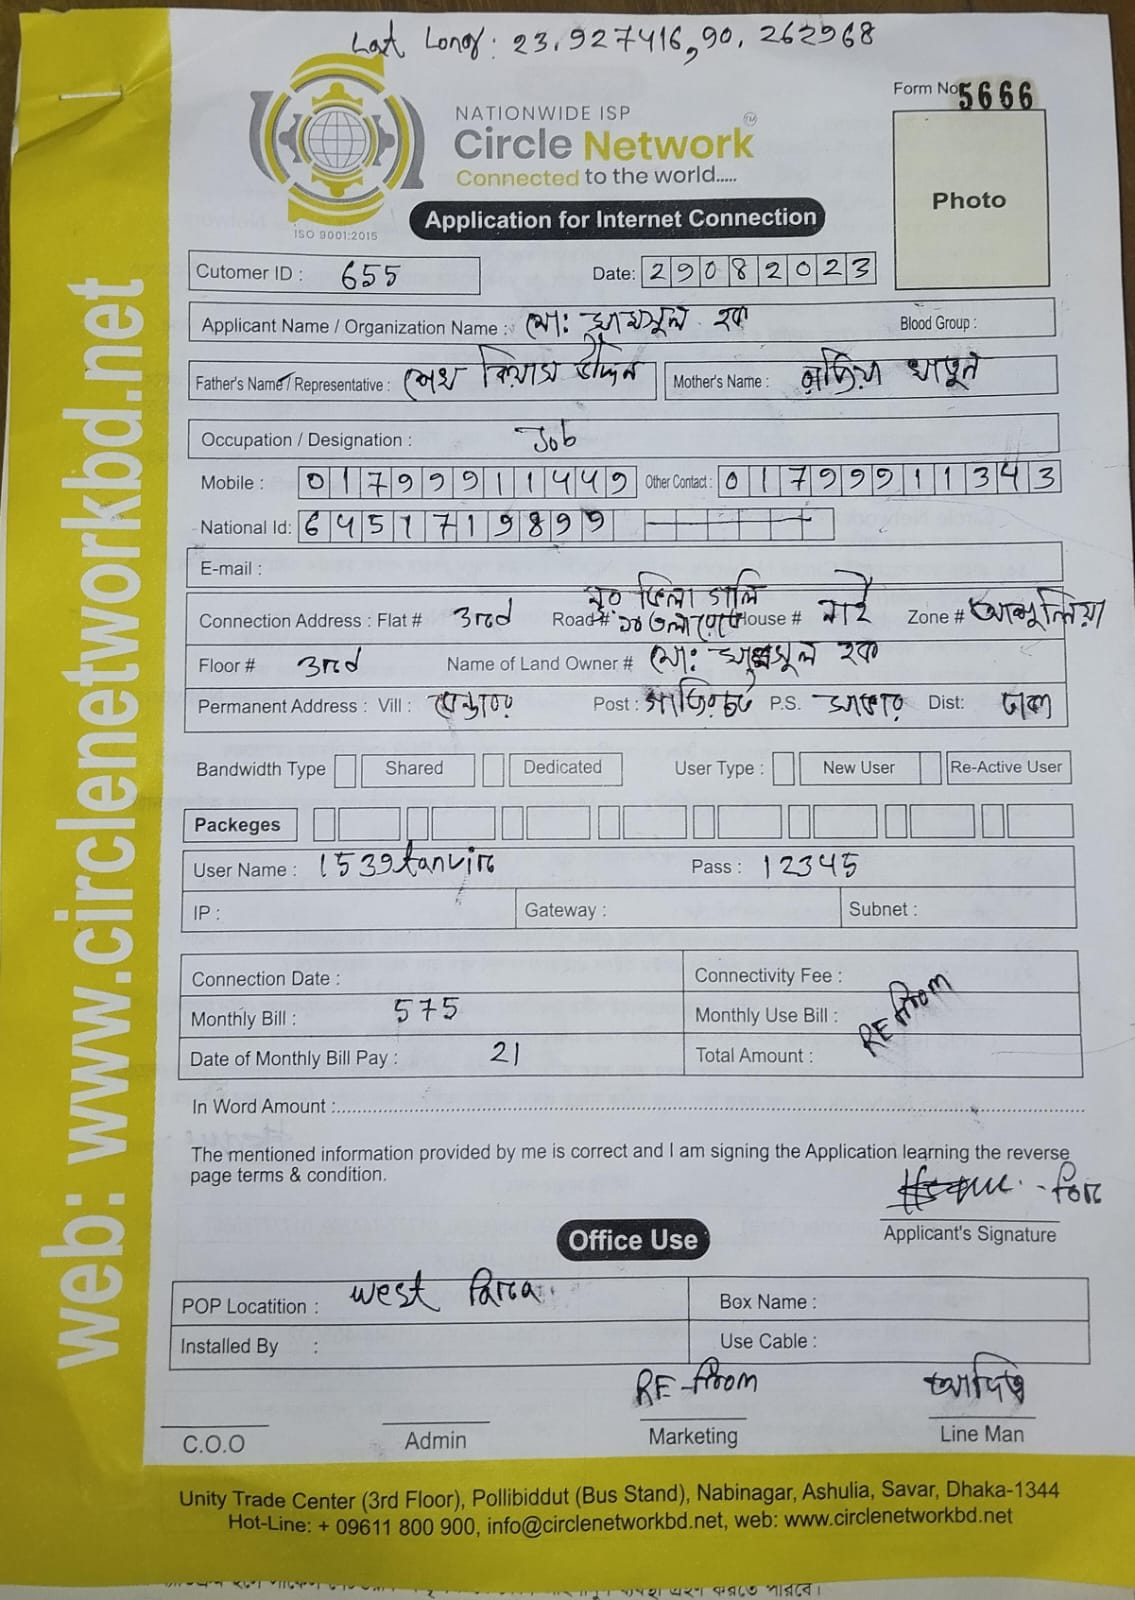 Lat Long: 23.927416,90.262968
Form No 5666
NATIONWIDE ISP
Circle Network TM
Connected to the world.....
ISO 9001:2015
Photo
Application for Internet Connection
Cutomer ID : 655 Date: 29082023
Applicant Name / Organization Name : মো: সামসুল হক Blood Group :
Father's Name / Representative : শেখ উদ্দিন Mother's Name : রাজিয়া খাতুন
Occupation / Designation : Job
Mobile : 01799911449 Other Contact : 01799911343
National Id: 6451719899
E-mail :
নূর ভিলা গলি
Connection Address : Flat # 3rd Road # ১০ তলা রোড House # নাই Zone # আশুলিয়া
Floor # 3rd Name of Land Owner # মো: সামসুল হক
Permanent Address : Vill : Post : গাজিরচট P.S. সাভার Dist: ঢাকা
Bandwidth Type Shared Dedicated User Type : New User Re-Active User
Packeges
User Name : 1539tanvir Pass : 12345
IP : Gateway : Subnet :
Connection Date : Connectivity Fee :
Monthly Bill : 575 Monthly Use Bill : RE from
Date of Monthly Bill Pay : 21 Total Amount :
In Word Amount :
The mentioned information provided by me is correct and I am signing the Application learning the reverse
page terms & condition.
for
Applicant's Signature
Office Use
POP Locatition : West Para Box Name :
Installed By : Use Cable :
RE-from
C.O.O Admin Marketing Line Man
Unity Trade Center (3rd Floor), Pollibiddut (Bus Stand), Nabinagar, Ashulia, Savar, Dhaka-1344
Hot-Line: + 09611 800 900, info@circlenetworkbd.net, web: www.circlenetworkbd.net
web: www.circlenetworkbd.net